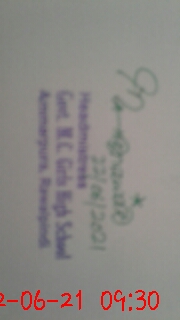 22/6/2021
Headmistress
Govt. M.C. Girls High School
Ammerpura, Rawalpindi
2-06-21 09:30